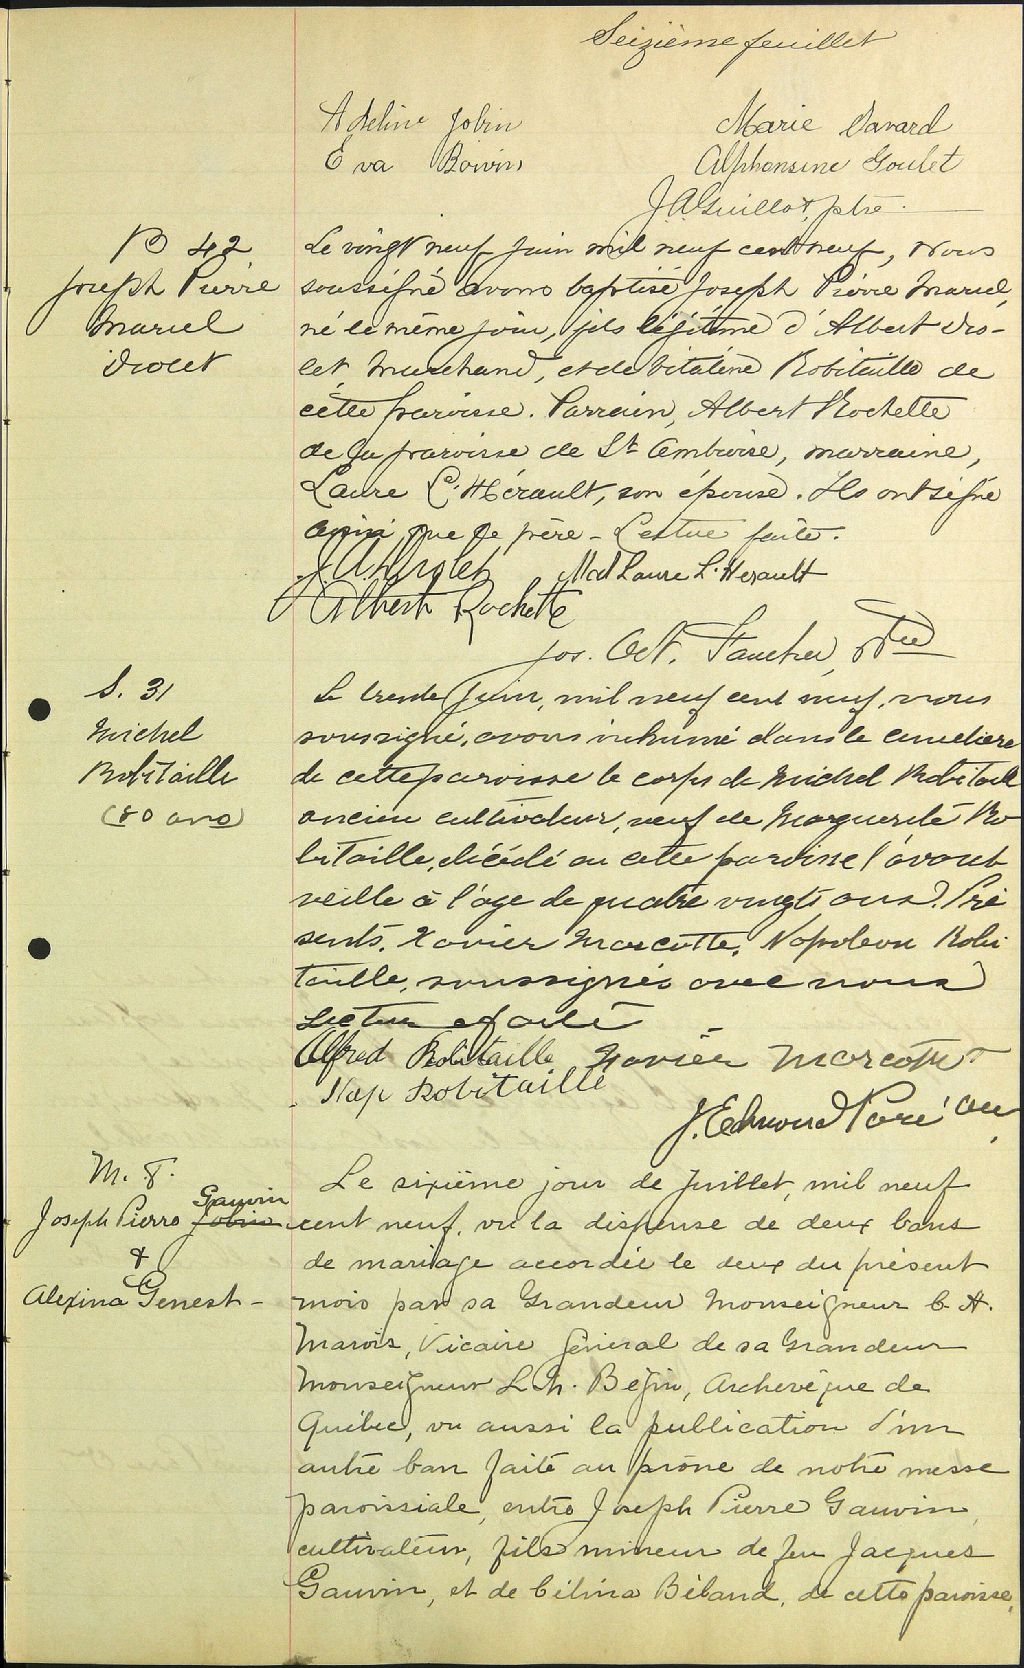 Seizième feuillet
Adeline Jobin
Marie Savard
Eva Boivin
Alphonsine Goulet
J A Guillot, ptre
B 42
Joseph Pierre
Marcel
Drolet
Le vingt neuf juin mil neuf cent neuf, nous
soussigné avons baptisé Joseph Pierre Marcel,
né le même jour, fils légitime d'Albert Dro-
let marchand, et de Vitaline Robitaille de
cette paroisse. Parrain, Albert Rochette
de la paroisse de St Ambroise, marraine,
Laure L'Hérault, son épouse. Ils ont signé
ainsi que le père - Lecture faite.
J. A. Drolet
Mad Laure L'Herault
Albert Rochette
Jos. Oct. Faucher, ptre
S. 31
Michel
Robitaille
(80 ans)
Le trente Juin, mil neuf cent neuf, nous
soussigné, avons inhumé dans le cimetière
de cette paroisse le corps de Michel Robitaille
ancien cultivateur, veuf de Marguerite Ro
bitaille, décédé en cette paroisse l'avant
veille à l'age de quatre vingts ans. Pré
sents, Xavier Marcotte, Napoleon Robi
taille, soussignés avec nous
Lecture faite
Alfred Robitaille
Xavier Marcotte
Nap Robitaille
J. Edmond Paré
M. 8.
Joseph Pierre Jobin Gauvin
&
Alexina Genest -
Le sixième jour de Juillet, mil neuf
cent neuf, vu la dispense de deux bans
de mariage accordée le deux du présent
mois par sa Grandeur Monseigneur C. A.
Marois, Vicaire général de sa Grandeur
Monseigneur L. N. Bégin, Archevêque de
Québec, vu aussi la publication d'un
autre ban faite au prône de notre messe
paroissiale, entre Joseph Pierre Gauvin,
cultivateur, fils mineur de feu Jacques
Gauvin, et de Célina Béland, de cette paroisse,